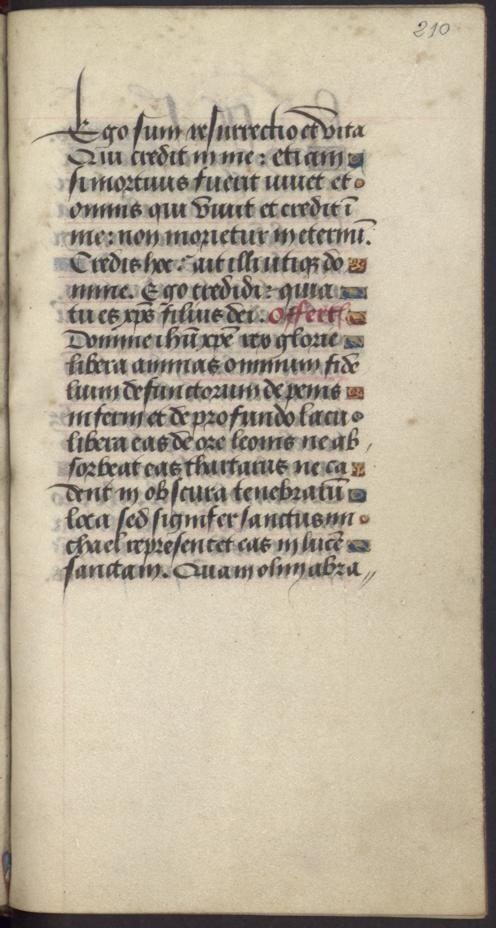 210
Ego sum resurrectio et vita
Qui credit in me : etiam
si mortuus fuerit viuet et
omnis qui viuit et credit ī
me : non morietur in eternū.
Credis hoc : ait illi utiqȝ do
mine. Ego credidi : quia
tu es xp̄s filius dei. Offert.
Domine ihū xp̄e rex glorie
libera animas omnium fide
lium defunctorum de penis
inferni et de profundo lacu
libera eas de ore leonis ne ab
sorbeat eas thartarus ne ca
dent in obscura tenebrarū
loca sed signifer sanctus mi
chael representet eas in lucē
sanctam. Quam olim abra